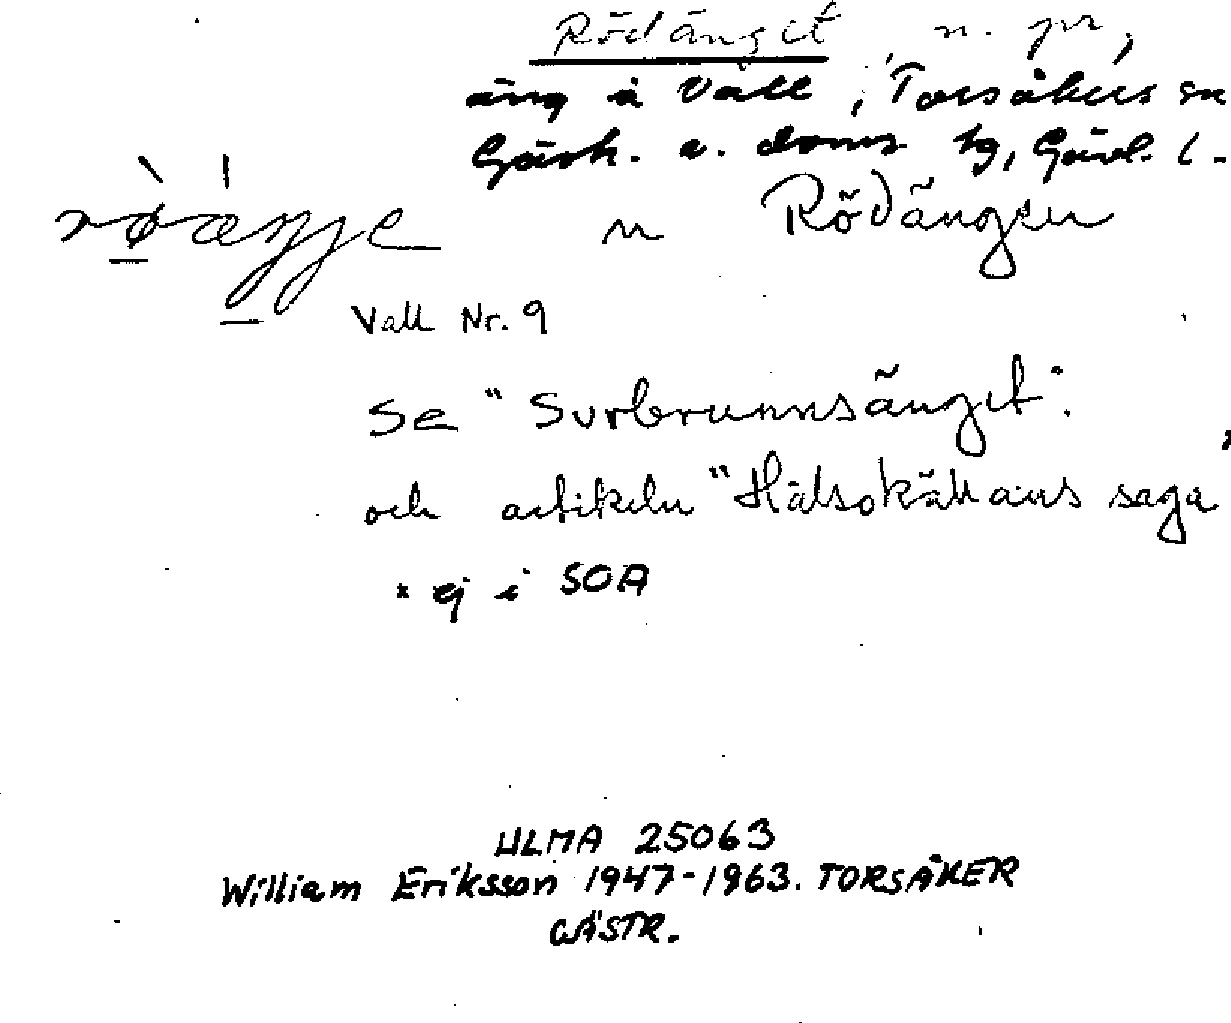 Rödänget, n. pr,
äng å Vall, Torsåkers sn
Gästr. ö. doms tg, Gävl. l.
n Rödängen
Vall Nr. 9
Se "Surbrunnsänget".
och artikeln "Hälsokällans saga
* ej i SOA
ULMA 25063
William Eriksson 1947-1963. TORSÅKER
GÄSTR.